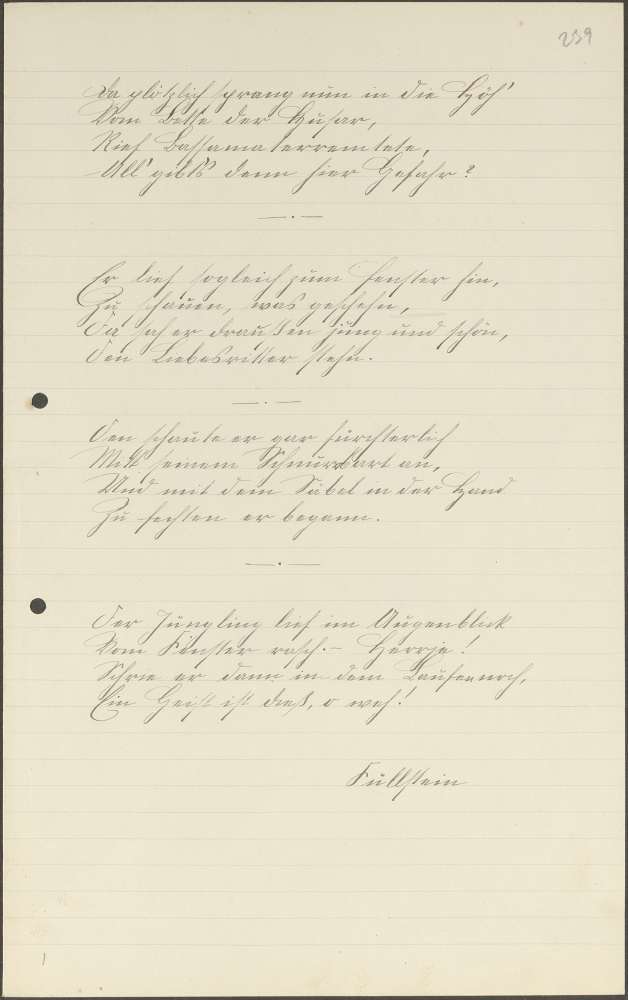 239
Da plötzlich sprang nun in die Höh'
Vom Bette der Husar,
Rief Bassamaterremtete,
All' gibt's denn hier Gefahr?
Er lief sogleich zum Fenster hin,
Zu schauen, was geschehn,
Da sah er draußen jung und schön,
Den Liebesritter stehn.
Den schaute er gar fürchterlich
Mit seinem Schnurrbart an,
Und mit dem Säbel in der Hand
Zu fechten er begann.
Der Jüngling lief im Augenblick
Vom Fenster rasch. – Herrje!
Schrie er dann in dem Laufen noch,
Ein Geist ist dieß, o weh!
Füllstein